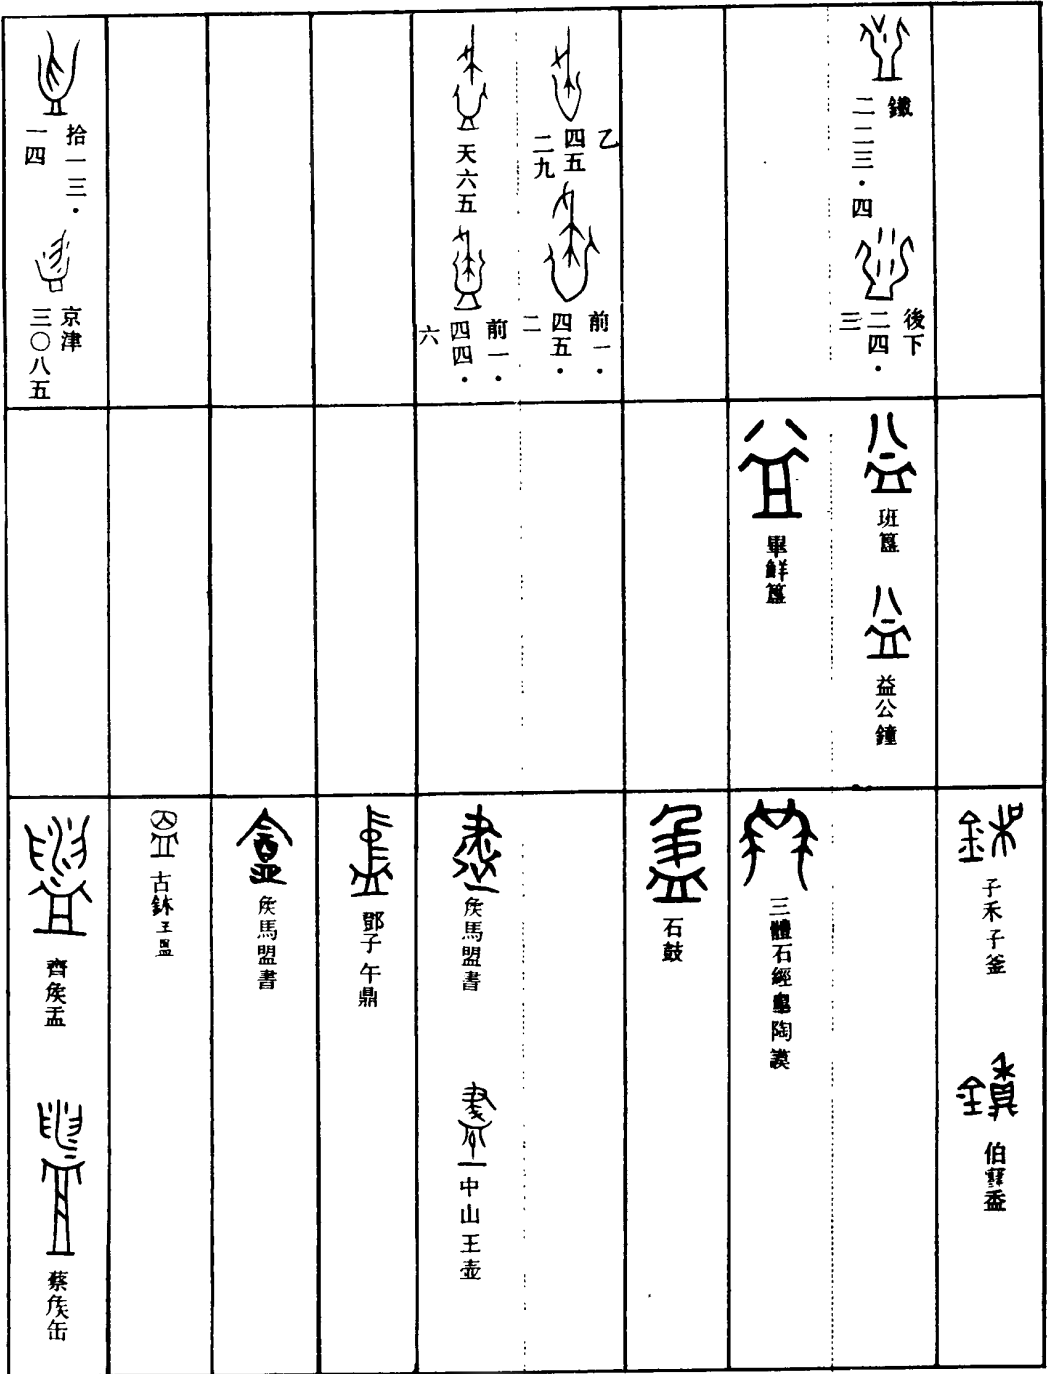 鐵
二二三·四
後下
二四·
三
乙
四五
二九
前一·
四五·
二
天六五
前一·
四四·
六
拾一三·
一四
京津
三〇八五
班簋
益公鐘
畢鮮簋
子禾子釜
三體石經皐陶謨
石鼓
矦馬盟書
中山王壺
鄧子午鼎
矦馬盟書
古鉢
齊矦盂
蔡矦缶